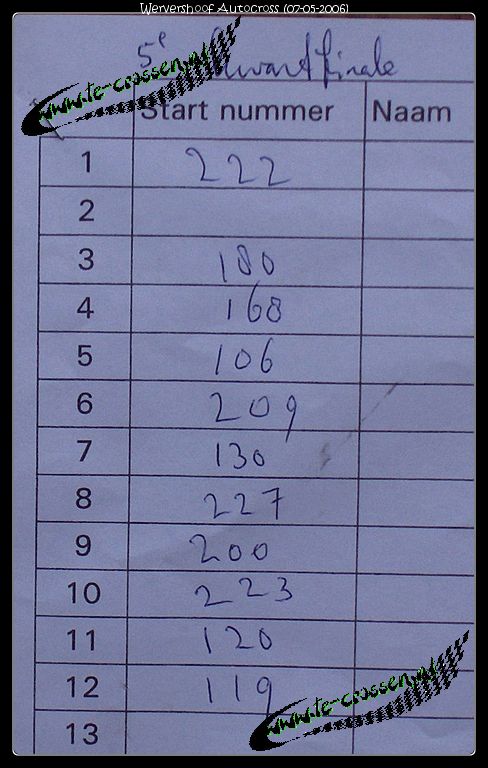 Wervershoof Autocross (07-05-2006)
5e kwart finale
www.te-crossen.nl
Start nummer Naam
1 222
2
3 180
4 168
5 106
6 209
7 130
8 227
9 200
10 223
11 120
12 119
www.te-crossen.nl
13